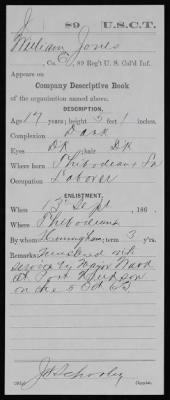 J 89 U.S.C.T.
William Jones
, Co. C, 89 Reg't U. S. Col'd Inf.
Appears on
Company Descriptive Book
of the organization named above.
DESCRIPTION.
Age 17 years; height 5 feet 1 inches.
Complexion Dark
Eyes DK ; hair DK
Where born Thibodeaux La
Occupation Laborer
ENLISTMENT.
When 13 Sept , 186
Where Thibodeaux
By whom ; term 3 y'rs.
Remarks: Mustered into
service by Major Ward
at Port Hudson
on the 5 Oct 63
Copyist.